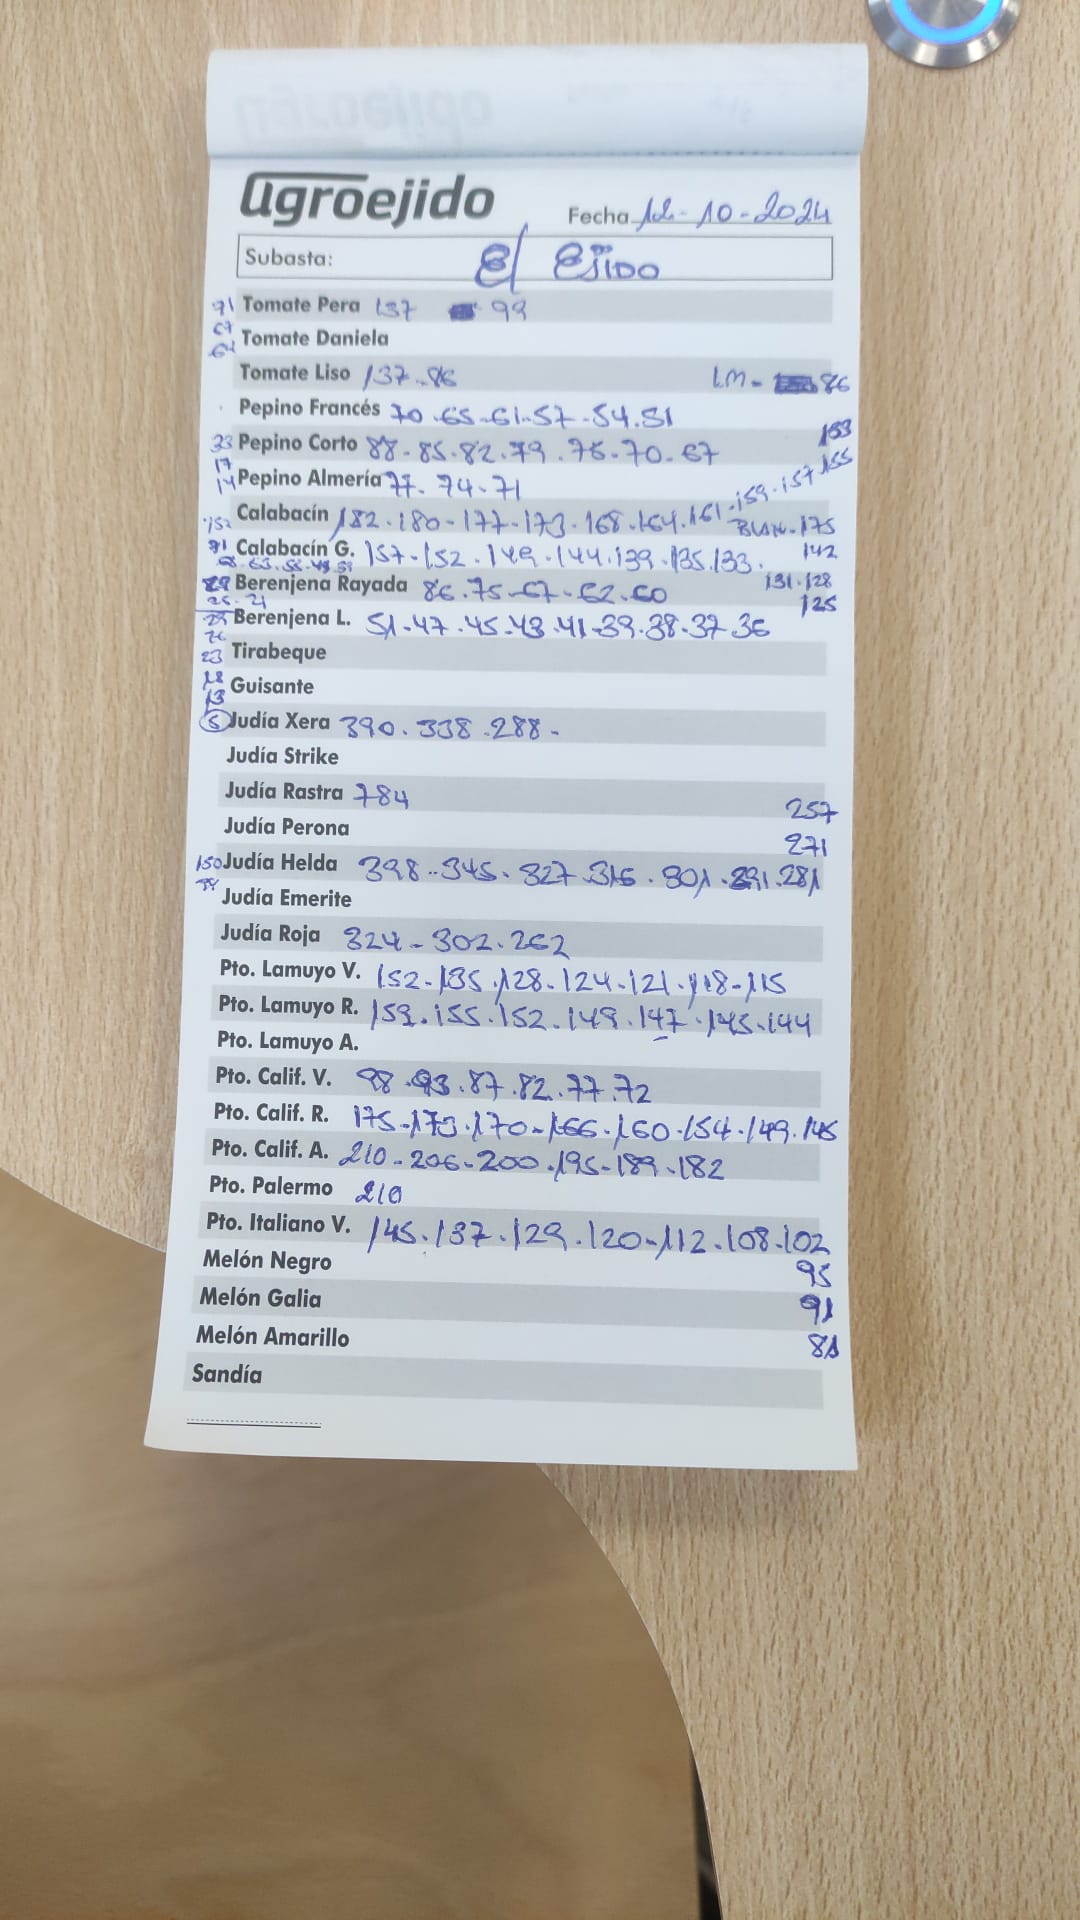 agroejido
Fecha 12-10-2024
Subasta: El Ejido
91 Tomate Pera 137 93
67 Tomate Daniela
64
Tomate Liso 137-86 LM- 86
Pepino Francés 70.65-61-57-54.51
153
33 Pepino Corto 88-85.82.79.76-70-67
17
14 Pepino Almería 77-74-71
152 Calabacín 182.180-177-173-168.164.161-159-157-155
BLAN.-175
91 Calabacín G. 157-152.149-144.139.135.133. 142
131.128
Berenjena Rayada 86.75-67-62.60
125
Berenjena L. 51-47.45.43.41-39.38.37-36
26
23 Tirabeque
18 Guisante
13
5 Judía Xera 390.338.288-
Judía Strike
Judía Rastra 784
257
Judía Perona
271
150 Judía Helda 398-345.327.316.301.291.281
Judía Emerite
Judía Roja 324-302.262
Pto. Lamuyo V. 152-135.128-124-121-118-115
Pto. Lamuyo R. 159.155.152.149.147.145.144
Pto. Lamuyo A.
Pto. Calif. V. 98.93.87.82.77.72
Pto. Calif. R. 175-173.170-166.160.154.149.145
Pto. Calif. A. 210-206-200.195-189-182
Pto. Palermo 210
Pto. Italiano V. 145.137.129.120-112.108.102
Melón Negro 95
Melón Galia 91
Melón Amarillo 81
Sandía